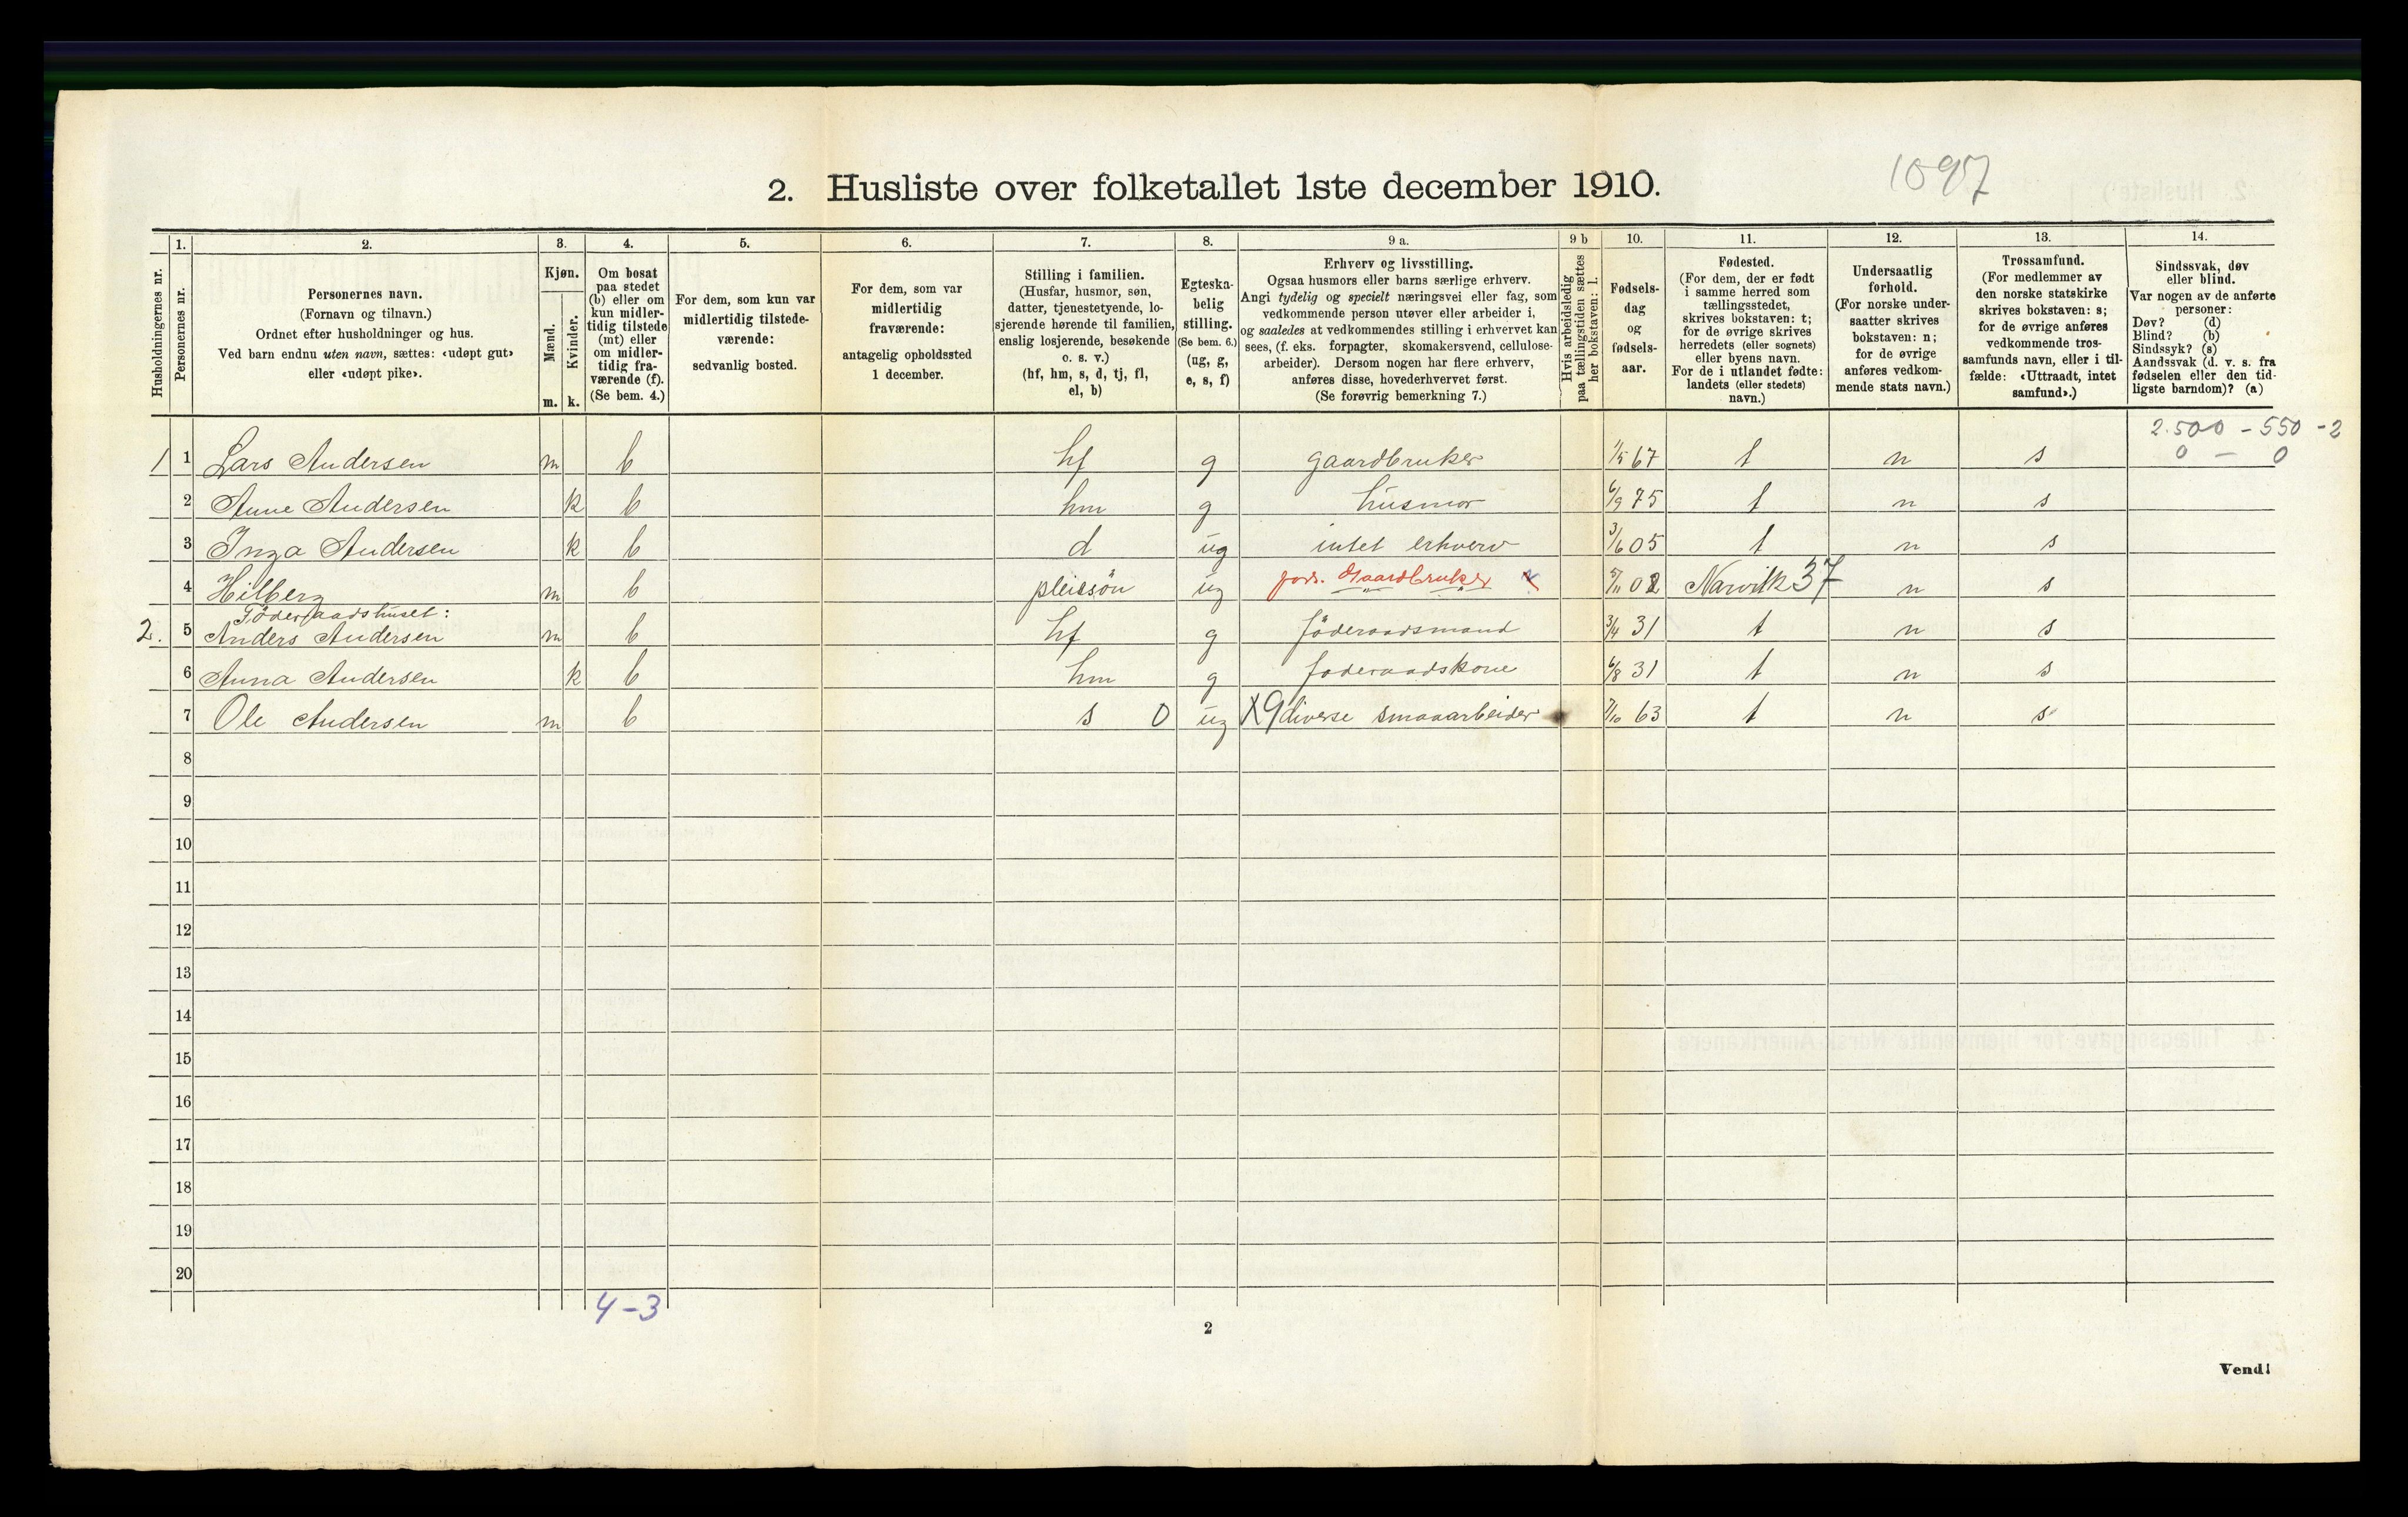 1097
2. Husliste over folketallet 1ste december 1910.
Husholdningernes nr.
1.
Personernes nr.
2.
Personernes navn.
(Fornavn og tilnavn.)
Ordnet efter husholdninger og hus.
Ved barn endnu uten navn, sættes: «udøpt gut»
eller «udøpt pike».
3.
Kjøn.
Mænd.
Kvinder.
m. k.
4.
Om bosat
paa stedet
(b) eller om
kun midler-
tidig tilstede
(mt) eller
om midler-
tidig fra-
værende (f).
(Se bem. 4.)
5.
For dem, som kun var
midlertidig tilstede-
værende:
sedvanlig bosted.
6.
For dem, som var
midlertidig
fraværende:
antagelig opholdssted
1 december.
7.
Stilling i familien.
(Husfar, husmor, søn,
datter, tjenestetyende, lo-
sjerende hørende til familien,
enslig losjerende, besøkende
o. s. v.)
(hf, hm, s, d, tj, fl,
el, b)
8.
Egteska-
belig
stilling.
(Se bem. 6.)
(ug, g,
e, s, f)
9 a.
Erhverv og livsstilling.
Ogsaa husmors eller barns særlige erhverv.
Angi tydelig og specielt næringsvei eller fag, som
vedkommende person utøver eller arbeider i,
og saaledes at vedkommendes stilling i erhvervet kan
sees, (f. eks. forpagter, skomakersvend, cellulose-
arbeider). Dersom nogen har flere erhverv,
anføres disse, hovederhvervet først.
(Se forøvrig bemerkning 7.)
9 b
Hvis arbeidsledig
paa tællingstiden sættes
her bokstaven: l.
10.
Fødsels-
dag
og
fødsels-
aar.
11.
Fødested.
(For dem, der er født
i samme herred som
tællingsstedet,
skrives bokstaven: t;
for de øvrige skrives
herredets (eller sognets)
eller byens navn.
For de i utlandet fødte:
landets (eller stedets)
navn.)
12.
Undersaatlig
forhold.
(For norske under-
saatter skrives
bokstaven: n;
for de øvrige
anføres vedkom-
mende stats navn.)
13.
Trossamfund.
(For medlemmer av
den norske statskirke
skrives bokstaven: s;
for de øvrige anføres
vedkommende tros-
samfunds navn, eller i til-
fælde: «Uttraadt, intet
samfund».)
14.
Sindssvak, døv
eller blind.
Var nogen av de anførte
personer:
Døv? (d)
Blind? (b)
Sindssyk? (s)
Aandssvak (d. v. s. fra
fødselen eller den tid-
ligste barndom)? (a)
2.500 - 550 - 2
0 - 0
1 1 Lars Andersen m b hf g gaardbruker 1/5 67 t n s
2 Anne Andersen k b hm g husmor 6/9 75 t n s
3 Inga Andersen k b d ug intet erhverv 3/6 05 t n s
4 Hilberg m b pleissön ug fors. Gaardbruker x 5/11 02 Narvik 37 n s
Föderaadshuset:
2. 5 Anders Andersen m b hf g föderaadsmand 3/4 31 t n s
6 Anna Andersen k b hm g foderaadskone 6/8 31 t n s
7 Ole Andersen m b s 0 ug X9 diverse smaaarbeider 7/10 63 t n s
8
9
10
11
12
13
14
15
16
17
18
19
20
4-3
2
Vend!